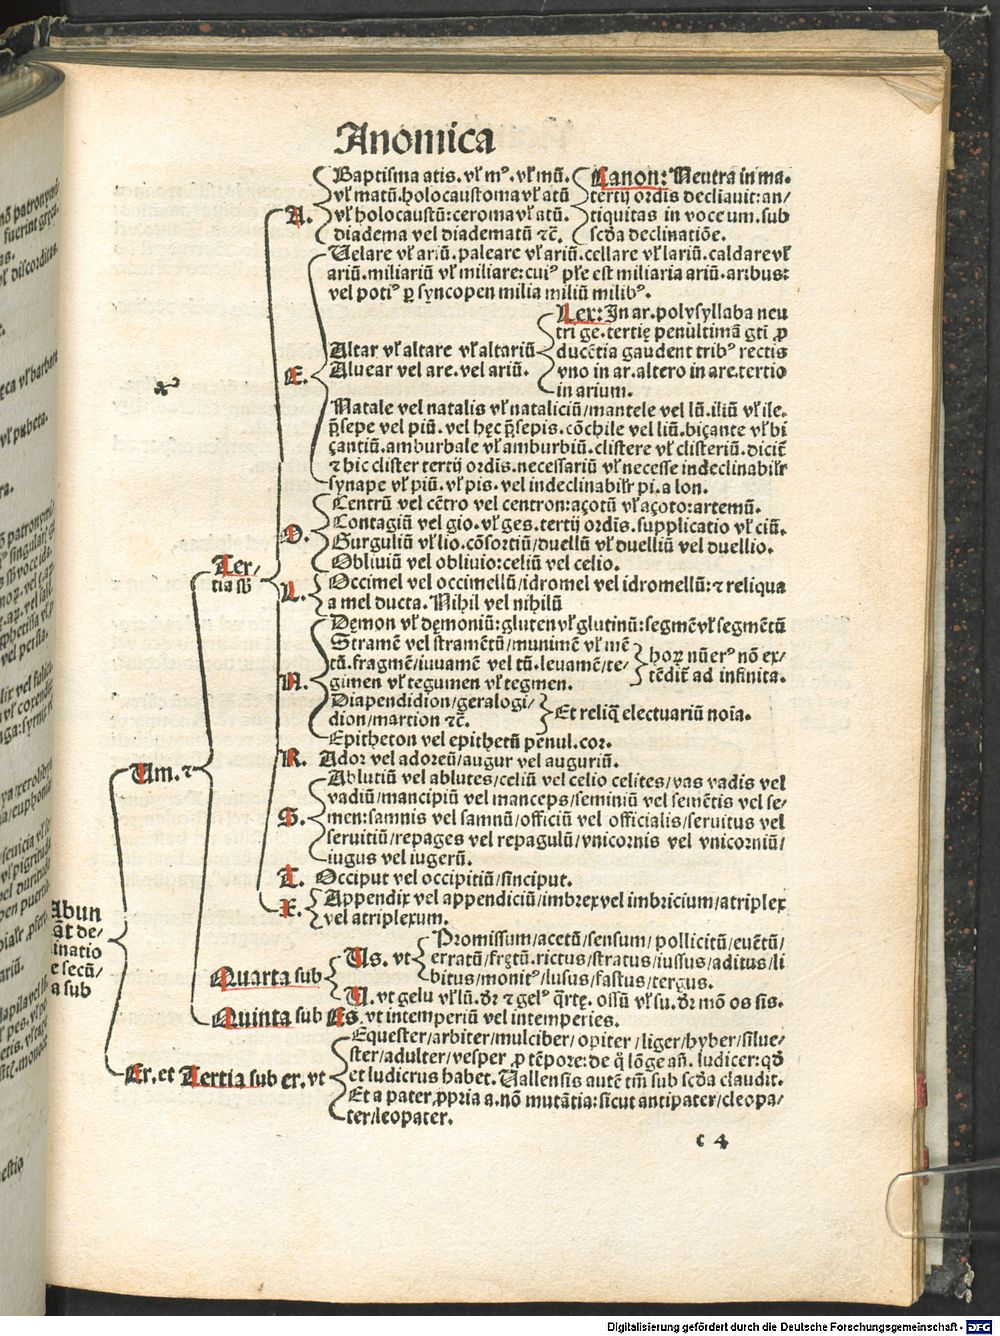 Anomica
Baptisma atis. vł mꝰ. vł mū.
vł matū.holocaustoma vł atū
A.
vł holocaustū:ceroma vł atū.
diadema vel diadematū ⁊c̄.
Canon: Neutra in ma.
tertij ordīs decliauit:an/
tiquitas in voce um. sub
scḋa declinatiōe.
Uelare vł ariū. paleare vł ariū. cellare vł lariū. caldare vł
ariū. miliariū vł miliare: cuiꝰ płe est miliaria ariū. aribus:
vel potiꝰ ꝑ syncopen milia miliū milibꝰ.
Lex: In ar. polysyllaba neu
tri ge. tertię penultimā gti ꝓ
E.
Altar vł altare vł altariū
ducētia gaudent tribꝰ rectis
Aluear vel are. vel ariū.
vno in ar. altero in are. tertio
in arium.
Natale vel natalis vł nataliciū/mantele vel lū. iliū vł ile.
p̄sepe vel piū. vel hęc p̄sepis. cōchile vel liū. biçante vł bi
çantiū. amburbale vł amburbiū. clistere vł clisteriū. dicit̄
⁊ hic clister tertij ordīs. necessariū vł necesse indeclinabilr
synape vł piū. vł pis. vel indeclinabilr pi. a lon.
O.
Centrū vel cētro vel centron: açotū vł açoto: artemū.
Contagiū vel gio. vł ges. tertij ordīs. supplicatio vł ciū.
Gurguliū vł lio. cōsortiū/duellū vł duelliū vel duellio.
Obliuiū vel obliuio: celiū vel celio.
Ter/
tia sb̄
L.
Occimel vel occimellū/idromel vel idromellū: ⁊ reliqua
a mel ducta. Nihil vel nihilū
Dęmon vł dęmoniū: gluten vł glutinū: segmē vł segmētū
Stramē vel stramētū/munimē vł mē
tū. fragmē/iuuamē vel tū. leuamē/te/
N.
gimen vł tegumen vł tegmen.
hoꝝ nūerꝰ nō ex/
tēdit̄ ad infinita.
Diapendidion/geralogi/
dion/martion ⁊c̄.
Et reliq̄ electuariū noīa.
Epitheton vel epithetū penul. cor.
R. Ador vel adoreū/augur vel auguriū.
Um. ⁊
Ablutiū vel ablutes/celiū vel celio celites/vas vadis vel
vadiū/mancipiū vel manceps/seminiū vel semētis vel se/
S.
men: samnis vel samnū/officiū vel officialis/seruitus vel
seruitiū/repages vel repagulū/vnicornis vel vnicorniū/
iugus vel iugerū.
T. Occiput vel occipitiū/sinciput.
X.
Appendix vel appendiciū/imbrex vel imbricium/atriplex
vel atriplexum.
Abun
āt de/
inatio
e secū/
a sub
Quarta sub
Us. vt
Promissum/acetū/sensum/pollicitū/euētū/
erratū/frętū. rictus/stratus/iussus/aditus/li
bitus/monitꝰ/lusus/fastus/tergus.
U. vt gelu vł lū. dr̄ ⁊ gelꝰ q̄rtę. ossū vł su. dr̄ mō os sis.
Quinta sub Es. vt intemperiū vel intemperies.
Er. et Tertia sub er. vt
Equester/arbiter/mulciber/opiter/liger/hyber/silue/
ster/adulter/vesper ꝓ tēpore: de q̄ lōge añ. ludicer: qḋ
et ludicrus habet. Uallensis autē tm̄ sub scḋa claudit.
Et a pater ꝓpria a. nō mutātia: sicut antipater/cleopa/
ter/leopater.
c 4
Digitalisierung gefördert durch die Deutsche Forschungsgemeinschaft - DFG